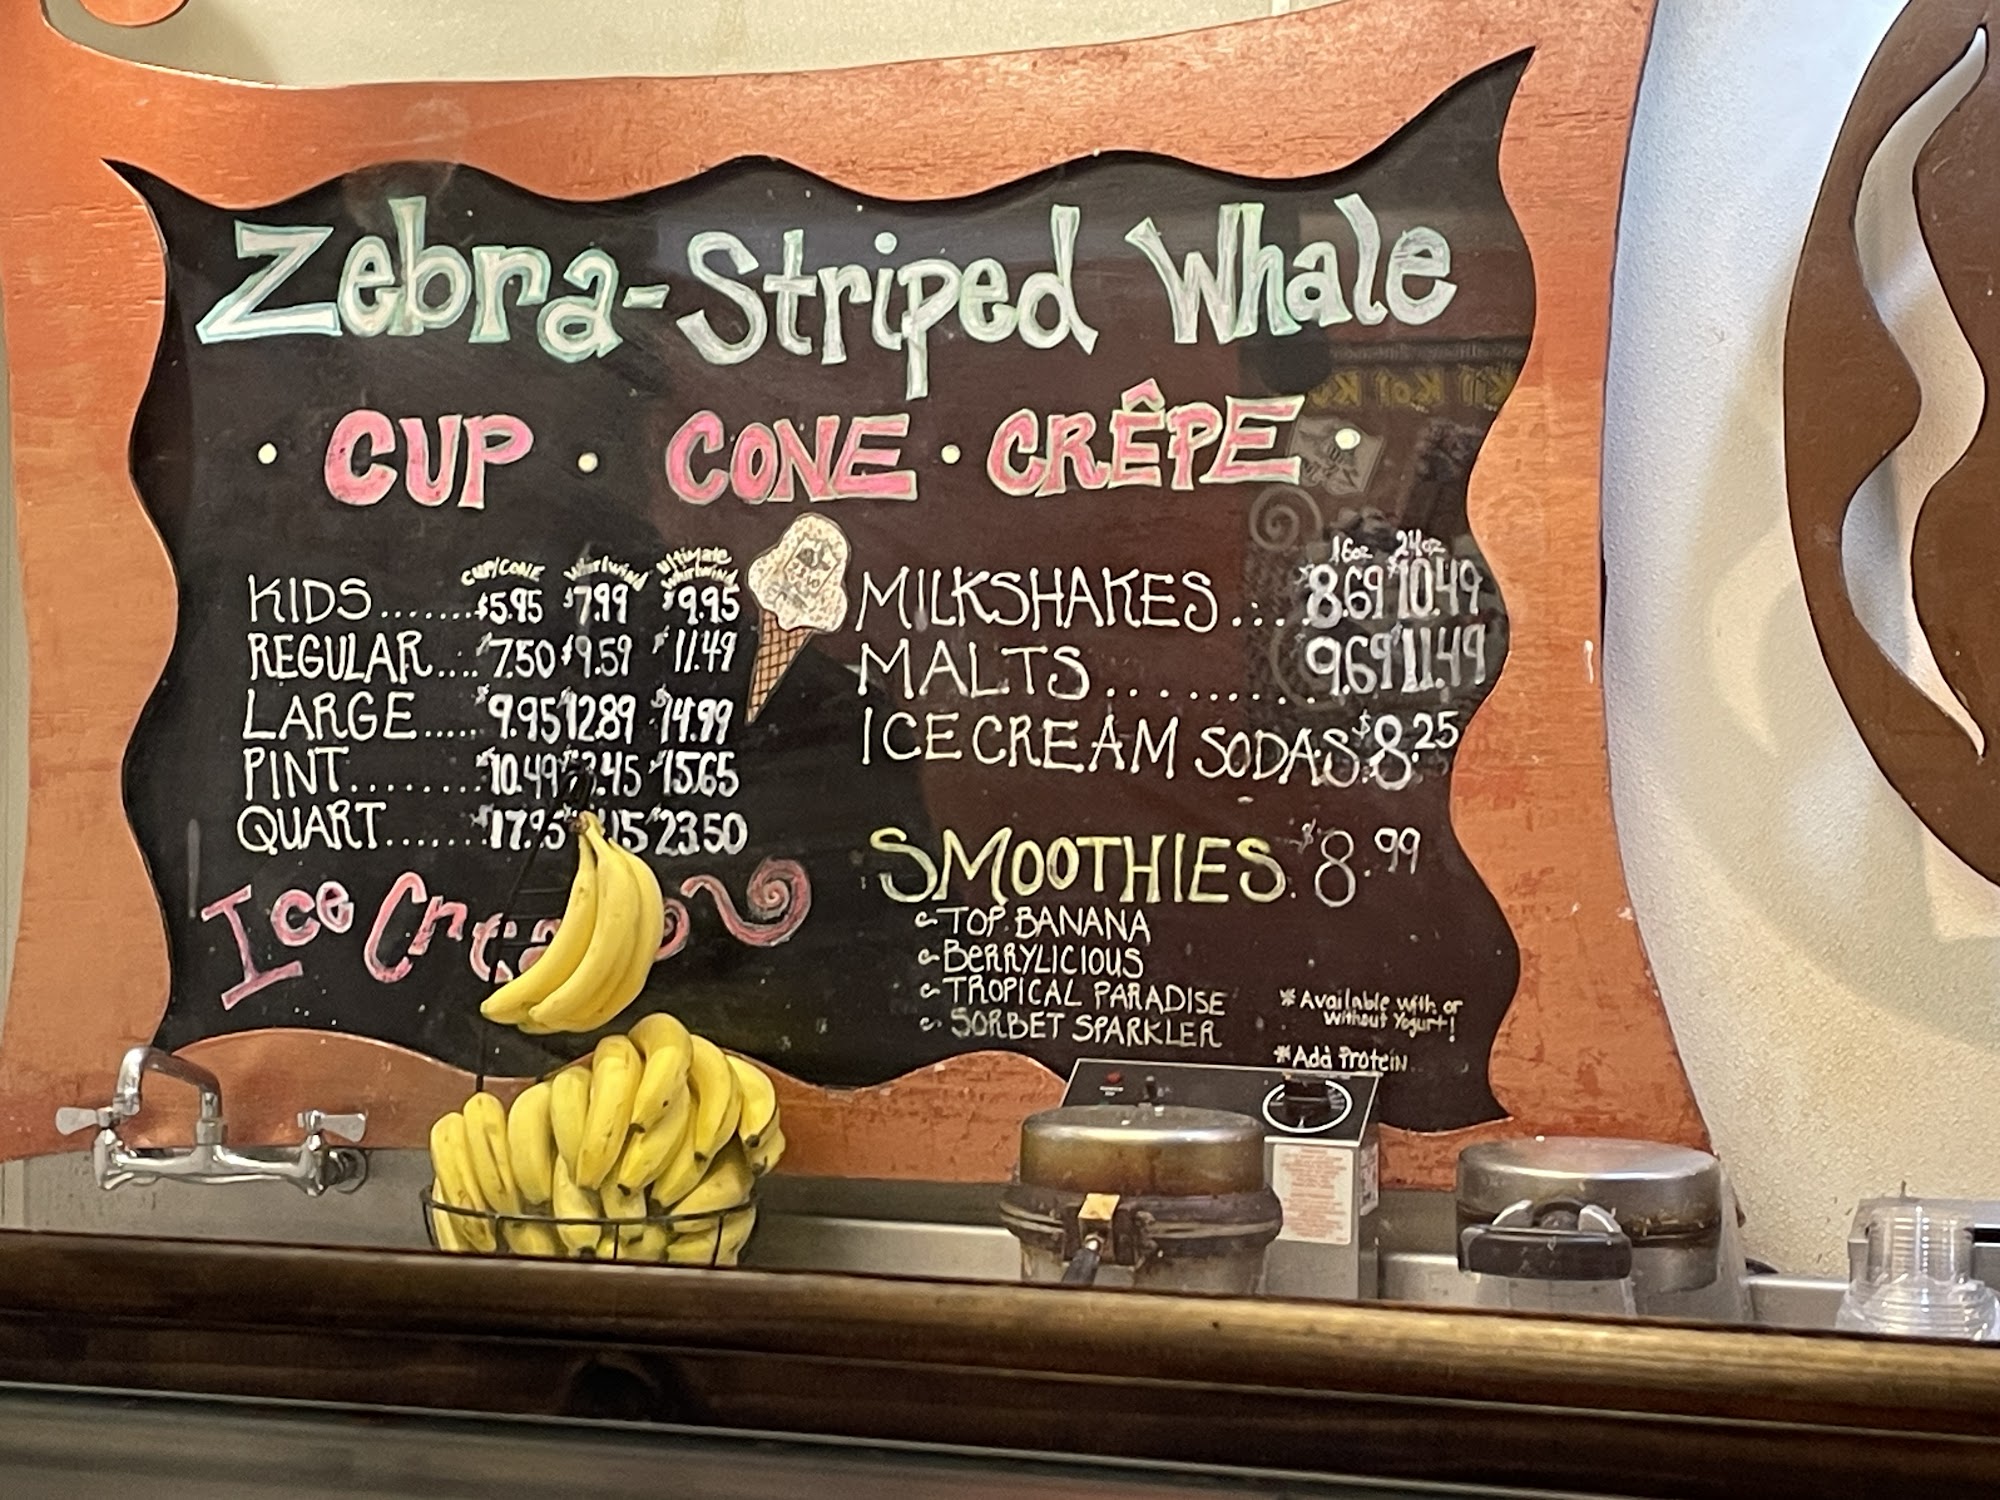 Zebra-Striped Whale
• CUP • CONE • CRÊPE •
CUP/CONE Whirlwind Ultimate Whirlwind
KIDS.......$5.95 $7.99 $9.95
REGULAR....$7.50 $9.59 $11.49
LARGE.....$9.95 $12.89 $14.99
PINT........$10.49 .45 $15.65
QUART.......$17.95 .15 $23.50
Ice
16oz 24oz
MILKSHAKES....$8.69 $10.49
MALTS........9.69 11.49
ICE CREAM SODAS $8.25
SMOOTHIES. $8.99
TOP BANANA
BERRYLICIOUS
TROPICAL PARADISE
SORBET SPARKLER
* Available with or
without Yogurt!
* Add Protein..